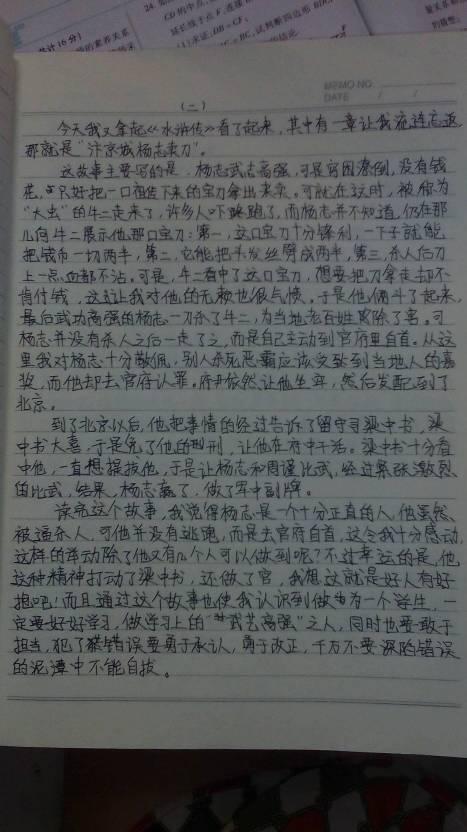 24.
CD的中点,
延长线于点F,连接B
(1)求证:DB=CF;
共计16分)
MEMO NO.
DATE / /
(二)
今天我又拿起《水浒传》看了起来,其中有一章让我流连忘返
那就是“汴京城杨志卖刀”。
这故事主要写的是,杨志武志高强,可是穷困潦倒,没有钱
花,只好把一口祖传下来的宝刀拿出来卖。可就在这时,被称为
“大虫”的牛二走来了,许多人吓跑了,而杨志并不知道,仍在那
儿向牛二展示他那口宝刀:第一,这口宝刀十分锋利,一下子就能
把钱币一切两半,第二,它能把头发丝劈成两半,第三,杀人后刀
上一点血都不沾。可是,牛二看中了这口宝刀,想要把刀拿走却不
肯付钱,这让我对他的无赖也很气愤。于是他俩斗了起来,
最后武功高强的杨志一刀杀了牛二,为当地老百姓除了害。可
杨志并没有杀人之后一走了之,而是自己主动到官府里自首。从这
里我对杨志十分敬佩,别人杀死恶霸应该受到当地人的嘉
奖,而他却去官府认罪。府尹依然让他坐牢,然后发配到了
北京。
到了北京以后,他把事情的经过告诉了留守司梁中书,梁
中书大喜,于是免了他的刑,让他在府中干活。梁中书十分看
中他,一直想提拔他,于是让杨志和周谨比武,经过紧张激烈
的比武,结果,杨志赢了,做了军中副牌。
读完这个故事,我觉得杨志是一个十分正直的人,他虽然
被逼杀人,可他并没有逃跑,而是去官府自首,这令我十分感动,
这样的举动除了他又有几个人可以做到呢?不过幸运的是,他
这种精神打动了梁中书,还做了官,我想这就是好人有好
报吧!而且通过这个故事也使我认识到做为一个学生,一
定要好好学习,做学习上的“武艺高强”之人,同时也要敢于
担当,犯了错误要勇于承认,勇于改正,千万不要深陷错误
的泥潭中不能自拔。